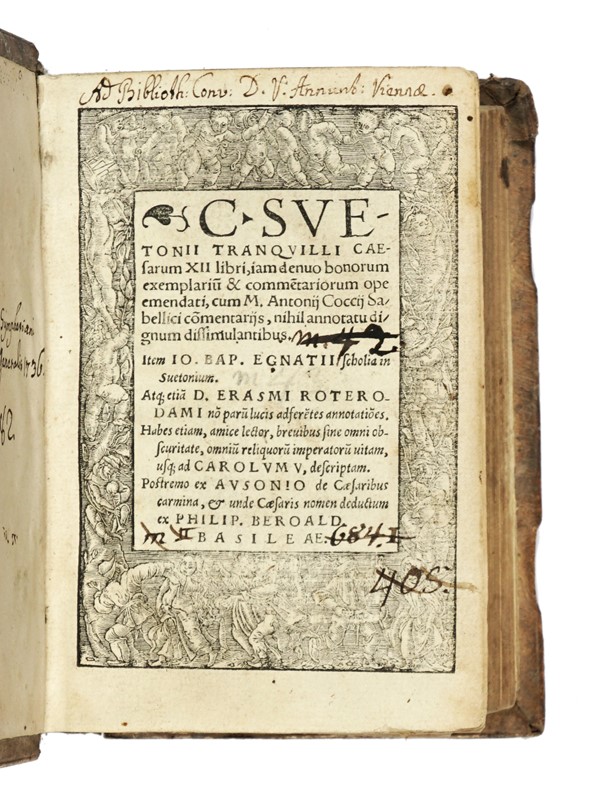 Ad Biblioth: Conv: D. V. Annunt: Viennæ.
C. SVE-
TONII TRANQVILLI CAE-
sarum XII libri, iam denuo bonorum
exemplariũ & commẽtariorum ope
emendati, cum M. Antonij Coccij Sa-
bellici cõmentarijs, nihil annotatu di-
gnum dissimulantibus.
m. 42.
Item IO. BAP. EGNATII scholia in
Suetonium.
Atq; etiã D. ERASMI ROTERO-
DAMI nõ parũ lucis adferẽtes annotatiões.
Habes etiam, amice lector, brevibus sine omni ob-
scuritate, omniũ reliquorũ imperatorũ uitam,
usq; ad CAROLVM V, descriptam.
Postremo ex AVSONIO de Cæsaribus
carmina, & unde Cæsaris nomen deductum
ex PHILIP. BEROALD.
m II BASILEAE. 684. I
405.
62.